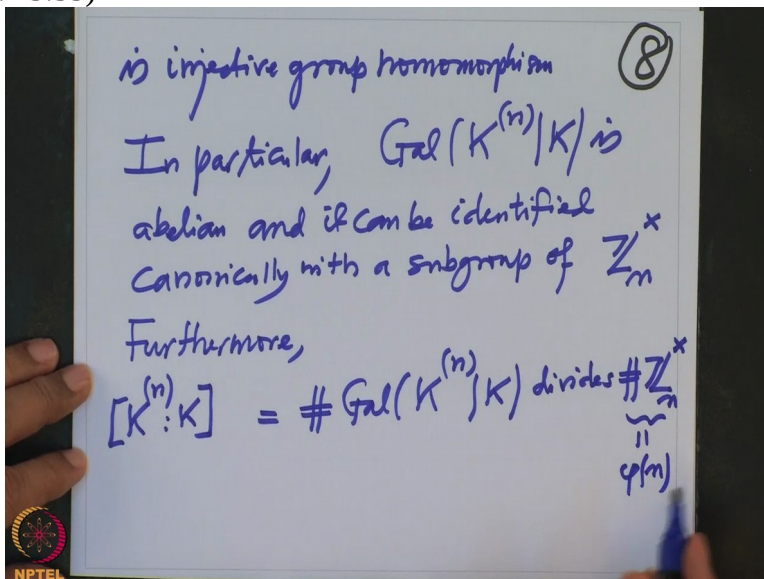 is injective group homomorphism
⑧
In particular, Gal(K^(n)|K) is
abelian and it can be identified
canonically with a subgroup of ℤ_n^×
Furthermore,
[K^(n):K] = # Gal(K^(n)|K) divides #ℤ_n^×
=
φ(n)
NPTEL